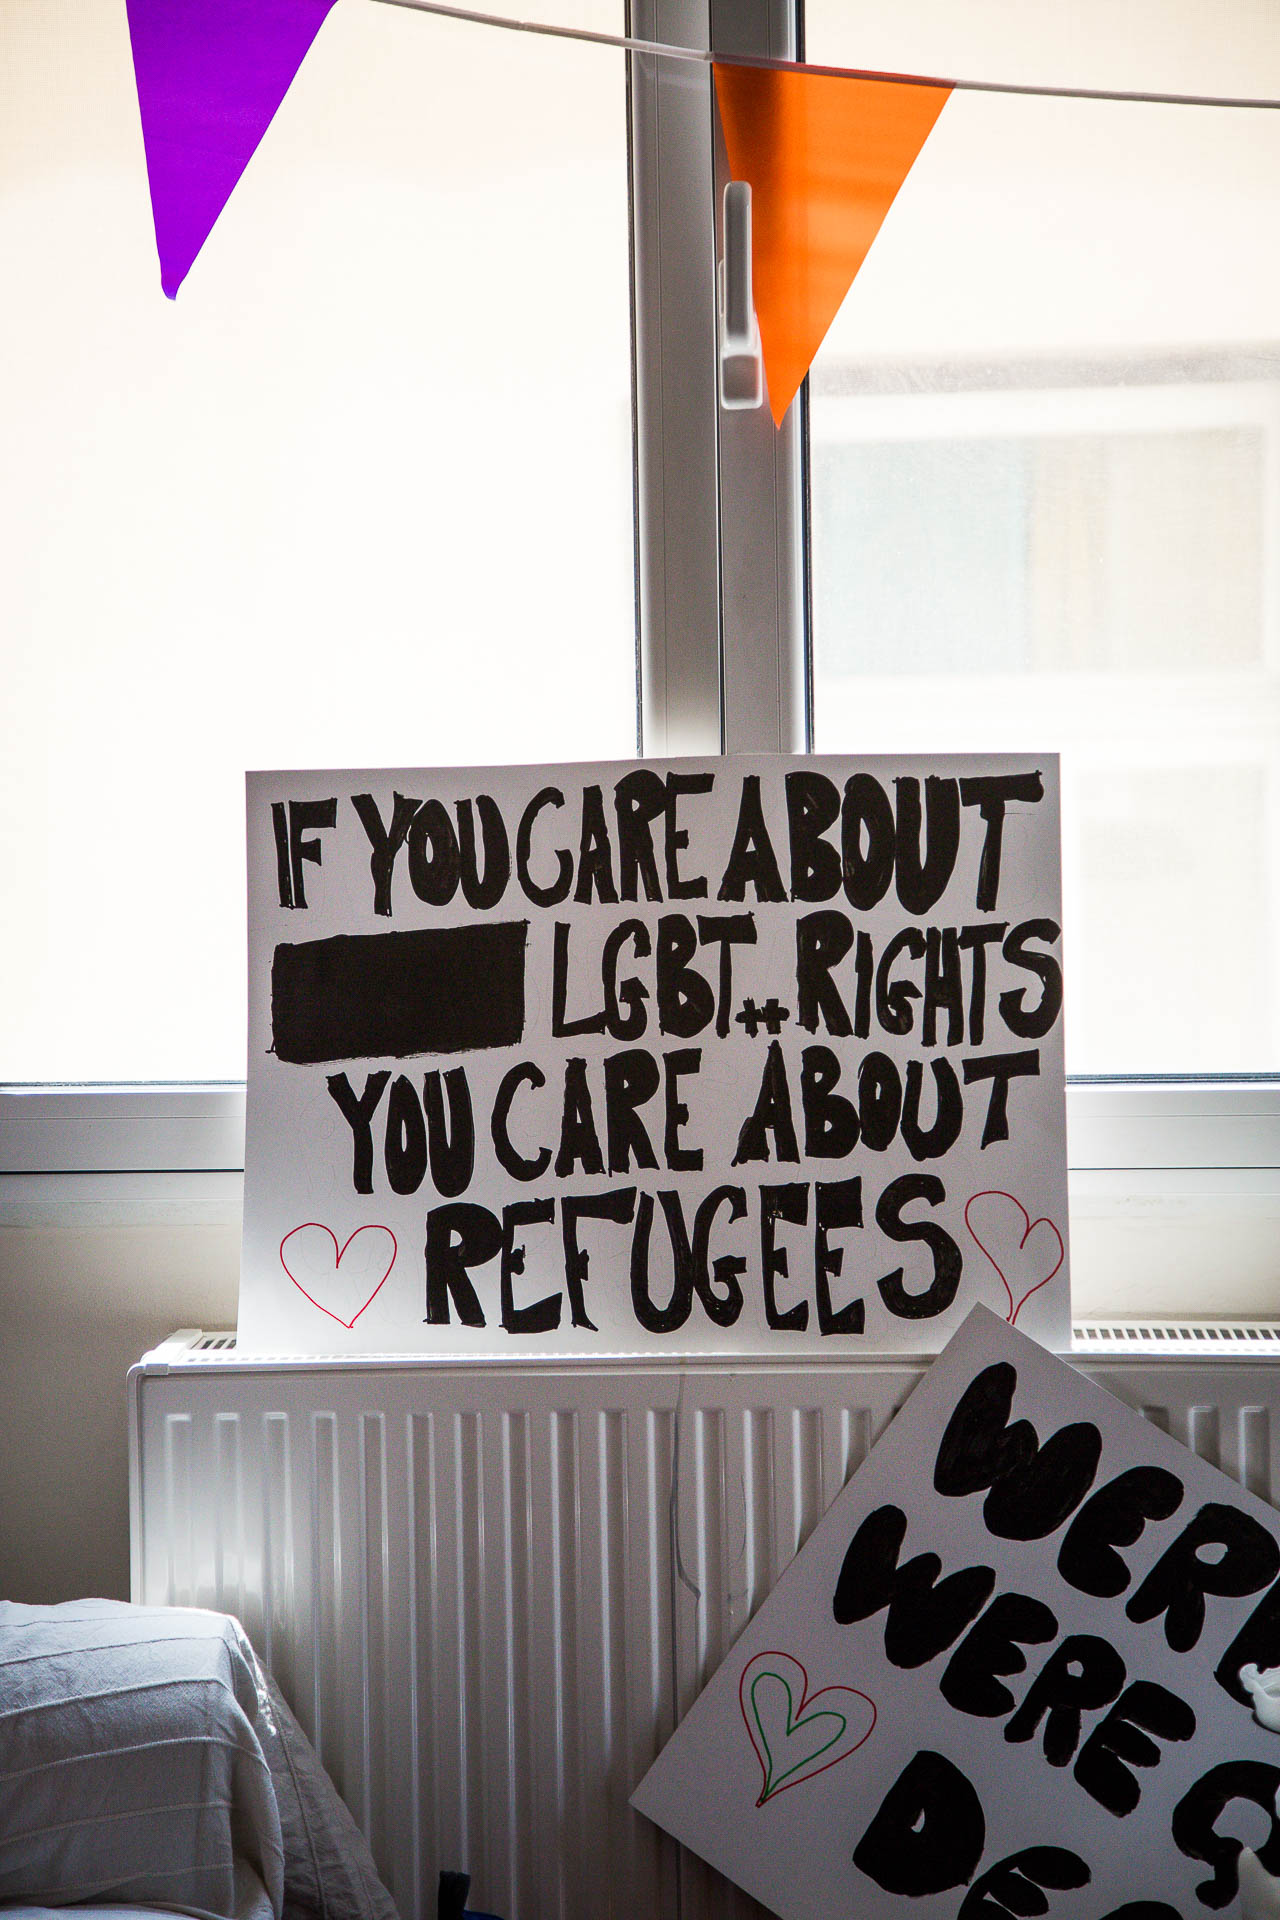 IF YOU CARE ABOUT
LGBT++ RIGHTS
YOU CARE ABOUT
REFUGEES
WERE
WERE